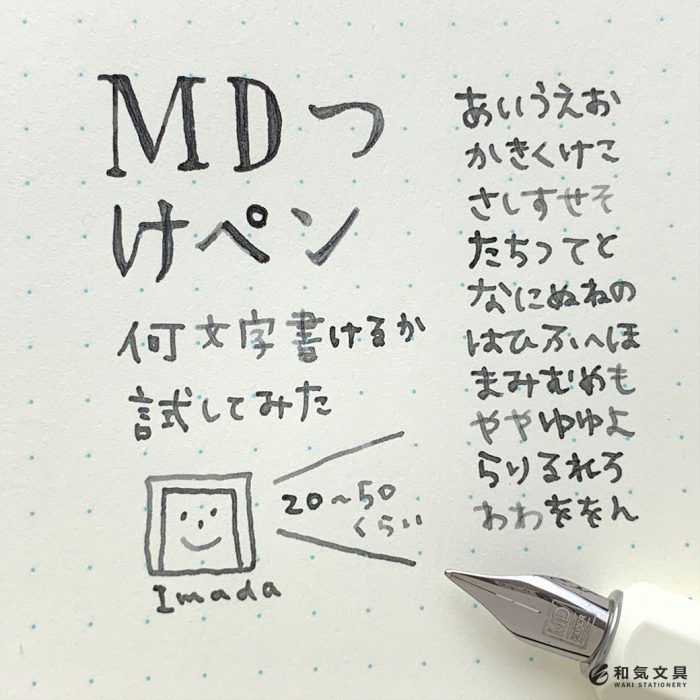 MDつ
けペン
何文字書けるか
試してみた
20~50
くらい
Imada
あいうえお
かきくけこ
さしすせそ
たちつてと
なにぬねの
はひふへほ
まみむめも
ややゆゆよ
らりるれろ
わわををん
MD
和気文具
WAKI STATIONERY